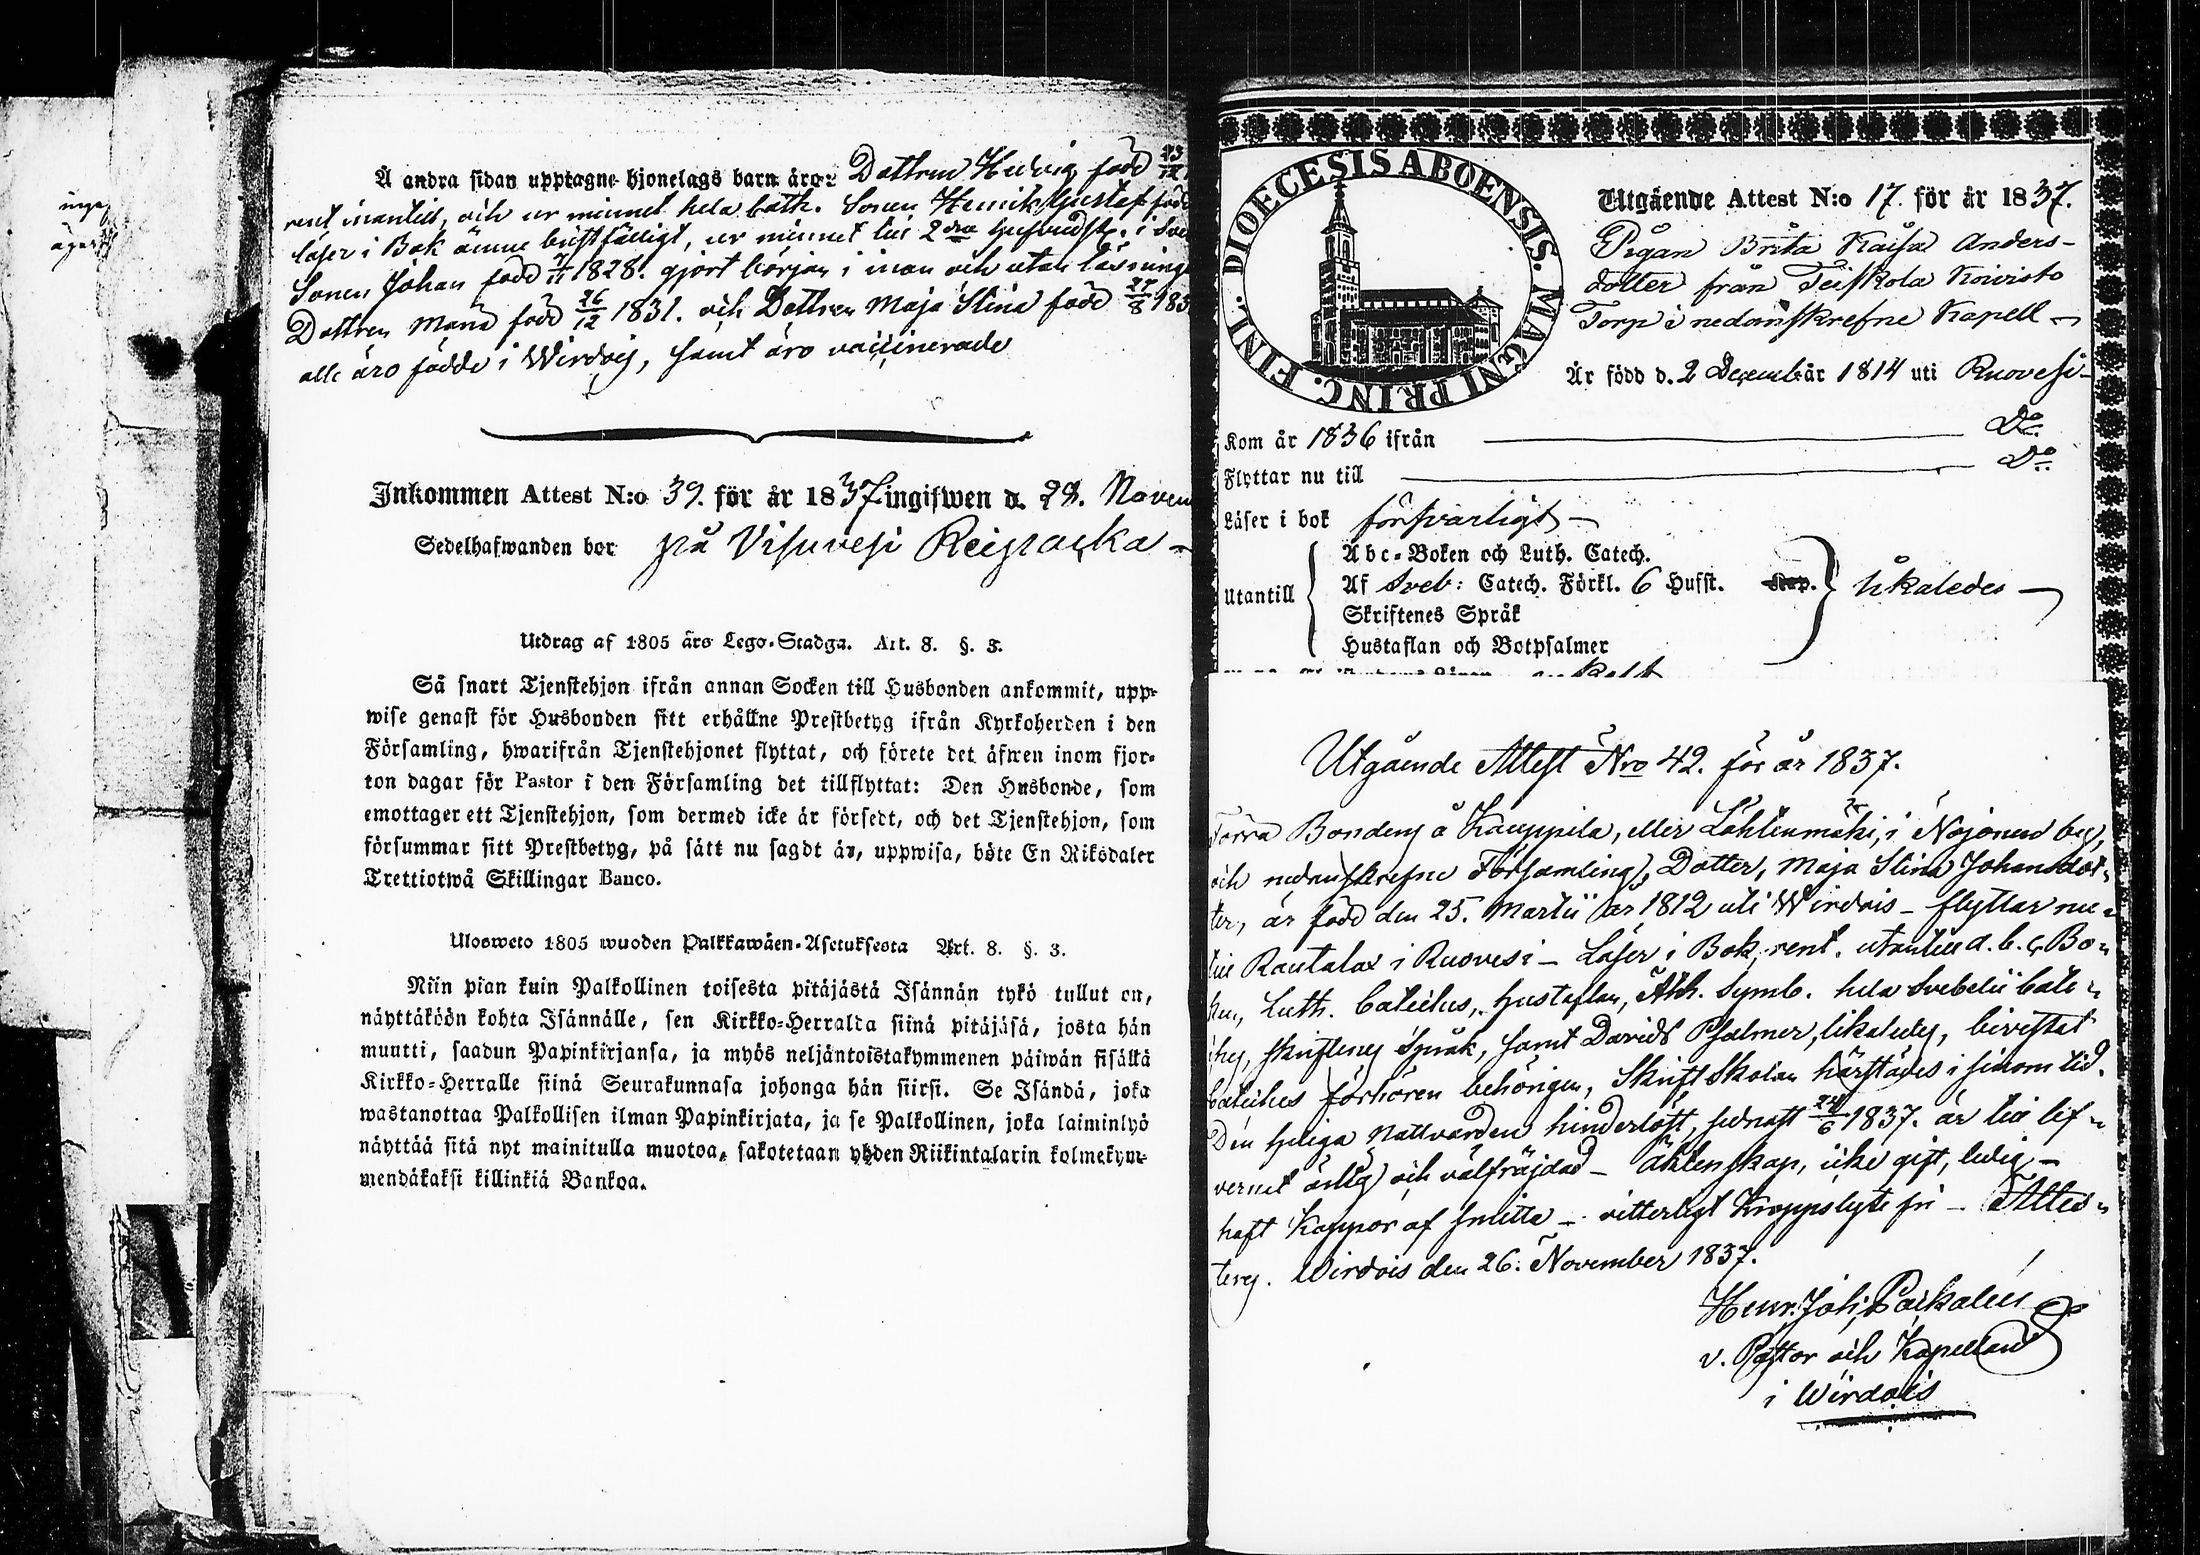 Å andra sidan upptagne hjonelags barn äro: Dottren Hedvig född 23/12
rent inantill, och ur minnet hela Cath. Sonen Henrik Gustaf född
läser i Bok ännu bristfälligt, ur minnet till 2dra Hufvudst. i Sve
Sonen Johan född 1828. gjort början i inan och utan läsning
Dottren Maria född 26/12 1831. och Dottren Maja Stina född 27/8 183
alla äro födde i Wirdois, samt äro vaccinerade
Inkommen Attest N:o 39. för år 1837 ingifwen d. 28. Novem
Sedelhafwanden bor på Visuvesi
Utdrag af 1805 års Lego-Stadga. Art. 8. §. 3.
Så snart Tjenstehjon ifrån annan Socken till Husbonden ankommit, upp-
wise genast för Husbonden sitt erhållne Prestbetyg ifrån Kyrkoherden i den
Församling, hwarifrån Tjenstehjonet flyttat, och förete det äfwen inom fjor-
ton dagar för Pastor i den Församling det tillflyttat: Den Husbonde, som
emottager ett Tjenstehjon, som dermed icke är försedt, och det Tjenstehjon, som
försummar sitt Prestbetyg, på sätt nu sagdt är, uppwisa, böte En Riksdaler
Trettiotwå Skillingar Banco.
Ulosweto 1805 wuoden Palkkawäen-Asetuksesta Art. 8. §. 3.
Niin pian kuin Palkollinen toisesta pitäjästä Isännän tykö tullut on,
näyttäköön kohta Isännälle, sen Kirkko-Herralta siinä pitäjäsä, josta hän
muutti, saadun Papinkirjansa, ja myös neljäntoistakymmenen päiwän sisällä
Kirkko-Herralle siinä Seurakunnasa johonga hän siirsi. Se Isändä, joka
wastanottaa Palkollisen ilman Papinkirjata, ja se Palkollinen, joka laiminlyö
näyttää sitä nyt mainitulla muotoa, sakotetaan yhden Riikintalarin kolmekym-
mendäkaksi killinkiä Bankoa.
DIOECESIS ABOENSIS. MAGNI PRINC. FINL.
Utgående Attest N:o 17. för år 1837.
Pigan Brita Kaisa Anders-
dotter från Teiskola Koivisto
Torp i nedanskrefne Kapell
Är född d. 2 Decemb år 1814 uti Ruovesi
Kom år 1836 ifrån Do
Flyttar nu till Do
Läser i bok försvarligt
Utantill
Abc-Boken och Luth. Catech.
Af Sveb: Catech. Förkl. 6 Hufst. Kap.
Skriftenes Språk
Hustaflan och Botpsalmer
likaledes
Utgående Attest Nro 42. för år 1837.
Förra Bondens å Kauppila, eller Lahtenmäki, i by,
och nedanskrefne Församlings, Dotter, Maja Stina Johansdot-
ter, är född den 25. Martii år 1812 uti Wirdois - flyttar nu
till Rautalax i Ruovesi - Läser i Bok, rent. utantill a.b.c. Bo-
ken, Luth. Cateches, Hustaflan, Ath. Symb. hela Svebelii Cate-
ches, skriftenes Språk, samt Davids Psalmer, likaledes, bevistat
Cateches förhören behörigen, Skriftskolan härstädes i sinom tid.
Den Heliga Nattvarden hinderlöst, sednast 24/6 1837. är till lef-
vernet ärlig och välfräjdad - Äktenskap, icke gift, ledig -
haft Koppor af smitta - vitterligt Kroppslyte fri - Attes-
teras. Wirdois den 26. November 1837.
Henr. Joh.
v. Pastor och Kapellan
i Wirdois